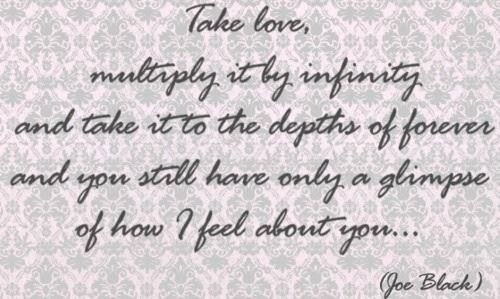 Take love,
multiply it by infinity
and take it to the depths of forever
and you still have only a glimpse
of how I feel about you...
(Joe Black)